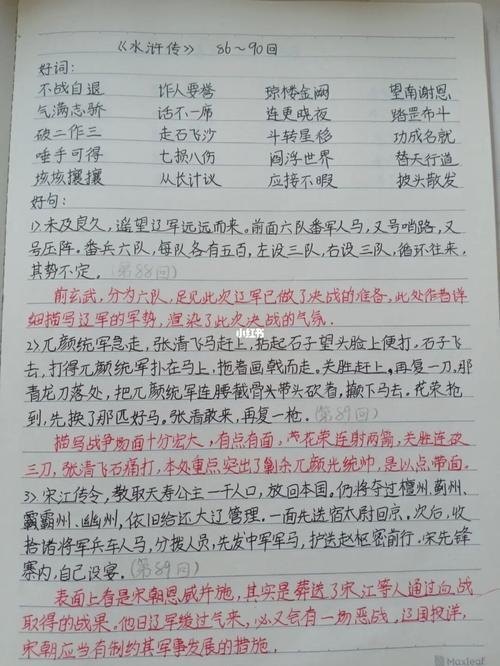 《水浒传》 86～90回
好词：
不战自退 诈人要誉 琼楼金阙 望南谢恩
气满志骄 话不一席 连更晓夜 踏罡布斗
破二作三 走石飞沙 斗转星移 功成名就
唾手可得 七损八伤 阎浮世界 替天行道
垓垓攘攘 从长计议 应接不暇 披头散发
好句：
1〉未及良久，遥望辽军远远而来。前面六队番军人马，又号哨路，又
号压阵。番兵六队，每队各有五百，左设三队，右设三队，循环往来，
其势不定。（第88回）
前玄武，分为六队，足见此次辽军已做了决战的准备，此处作者详
细描写辽军的军势，渲染了此次决战的气氛。
2〉兀颜统军急走，张清飞马赶上，拈起石子望头脸上便打，石子飞
去，打得兀颜统军扑在马上，拖着画戟而走。关胜赶上，再复一刀，那
青龙刀落处，把兀颜统军连腰截骨头带头砍着，撷下马去。花荣抢
到，先换了那匹好马。张清敢来，再复一枪。（第89回）
描写战争场面十分宏大，有点有面，花荣连射两箭，关胜连砍
三刀，张清飞石痛打，本处重点突出了剿杀兀颜光统帅，是以点带面。
3〉宋江传令，教取天寿公主一干人口，放回本国。仍将夺过檀州、蓟州、
霸州、幽州，依旧给还大辽管理。一面先送宿太尉回京。次后，收
拾诸将军兵车人马，分拨人员，先发中军军马，护送赵枢密前行。宋先锋
寨内，自己设宴。（第89回）
表面上看是宋朝恩威并施，其实是葬送了宋江等人通过血战
取得的战果。他日辽军缓过气来，必又会有一场恶战，辽国投洋，
宋朝应当有制约其军事发展的措施。
小红书
Maxleaf